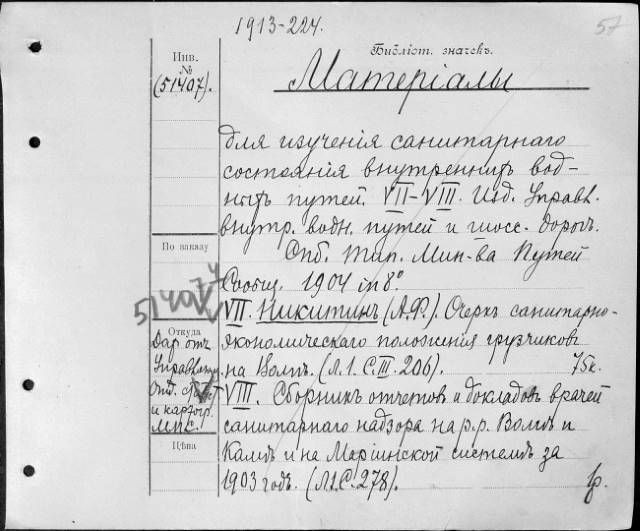 1913-224.
57
Инв.
№
(51407).
Библіот. значекъ.
Матеріалы
для изученія санитарнаго
состоянія внутреннихъ вод-
ныхъ путей. VII-VIII. Изд. Управл.
внутр. водн. путей и шосс. дорогъ.
Спб. тип. Мин-ва Путей
Сообщ. 1904 in 8°
По наказу
51407
VII. Никитинъ (А.Ф.). Очеркъ санитарно-
экономическаго положенія грузчиковъ
на Волгѣ. (Л.1.С.III.206). 75к.
Откуда
Даръ отъ
Управленія
Отд.
и картогр.
М.П.С.
VIII. Сборникъ отчетовъ и докладовъ врачей
санитарнаго надзора на р.р. Волгѣ и
Камѣ и на Маріинской системѣ за
1903 годъ. (Л1.С.278). 1р.
Цѣна